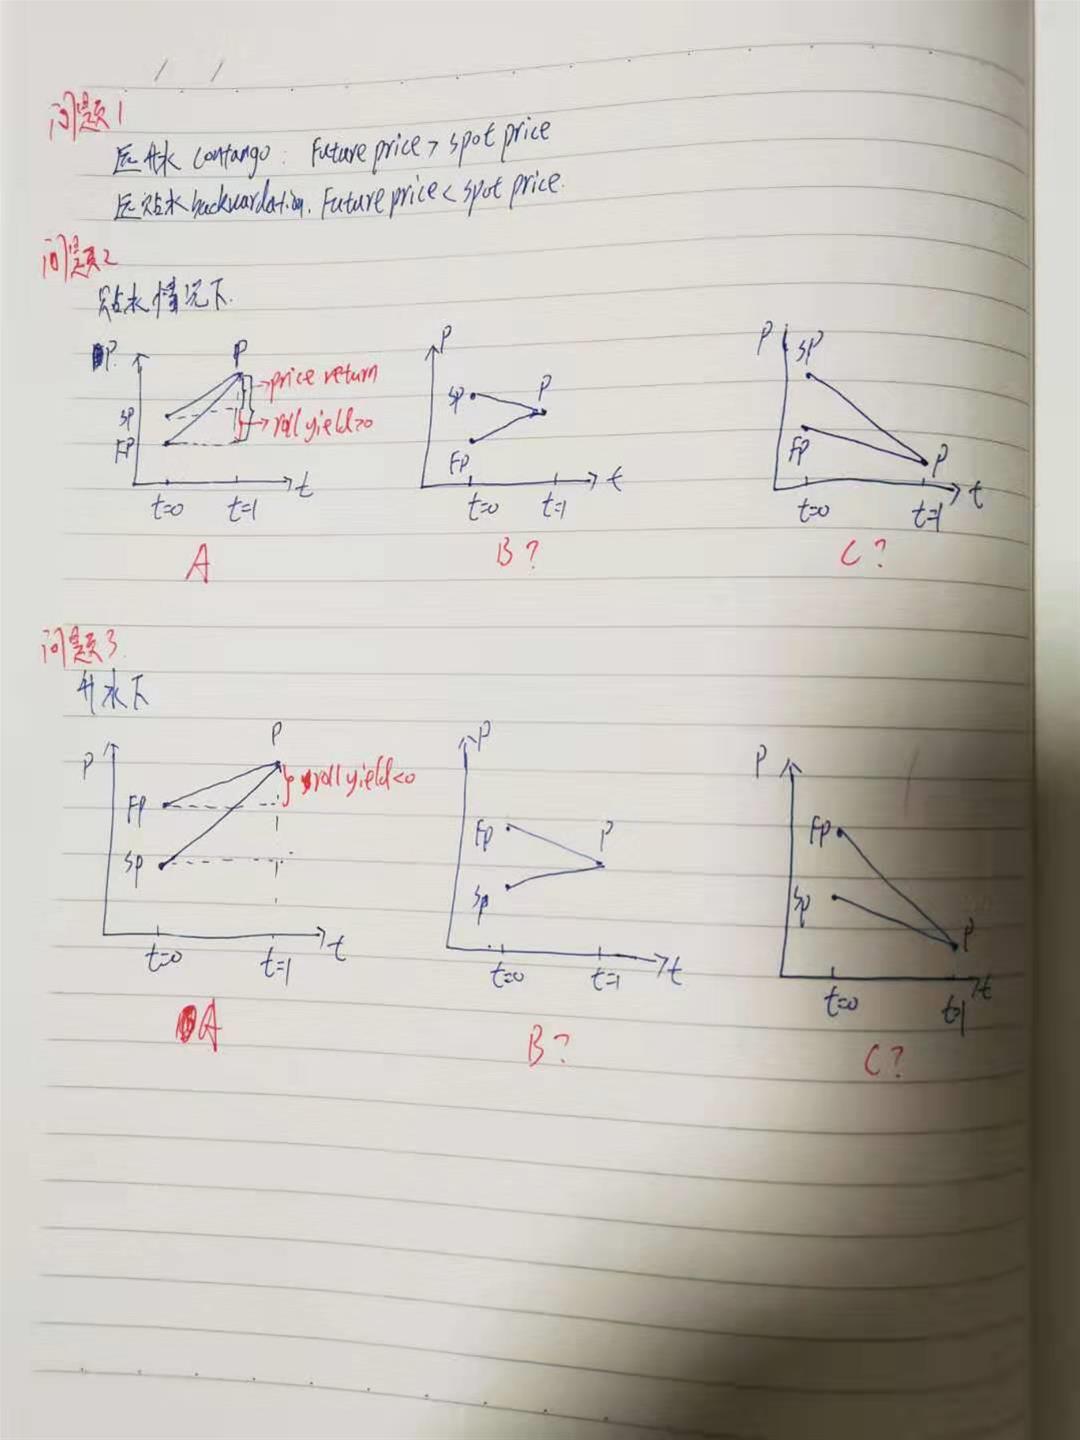 问题1
远升水 contango: Future price > spot price
远贴水 backwardation. Future price < spot price.
问题2
贴水情况下.
P. P
SP
FP
price return
roll yield>0
t=0 t=1 t
A
P
SP P
FP
t=0 t=1 t
B?
P SP
FP P
t=0 t=1 t
C?
问题3.
升水下
P P
FP
SP
roll yield<0
t=0 t=1 t
A
P
FP P
SP
t=0 t=1 t
B?
P
FP
SP P
t=0 t=1 t
C?